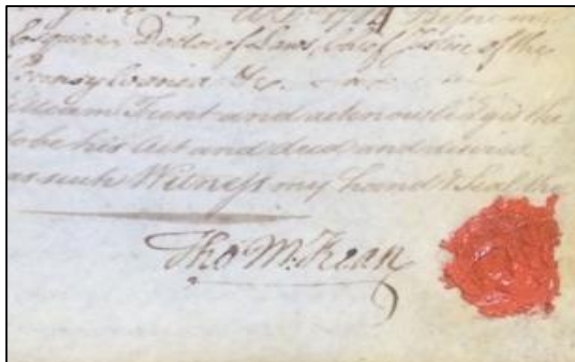 Before me
Esquire Doctor of Laws, Chief Justice of the
Pennsylvania &c.
William Trent and acknowledged the
to be his Act and deed and desired
as such Witness my hand & Seal the
Tho M:Kean